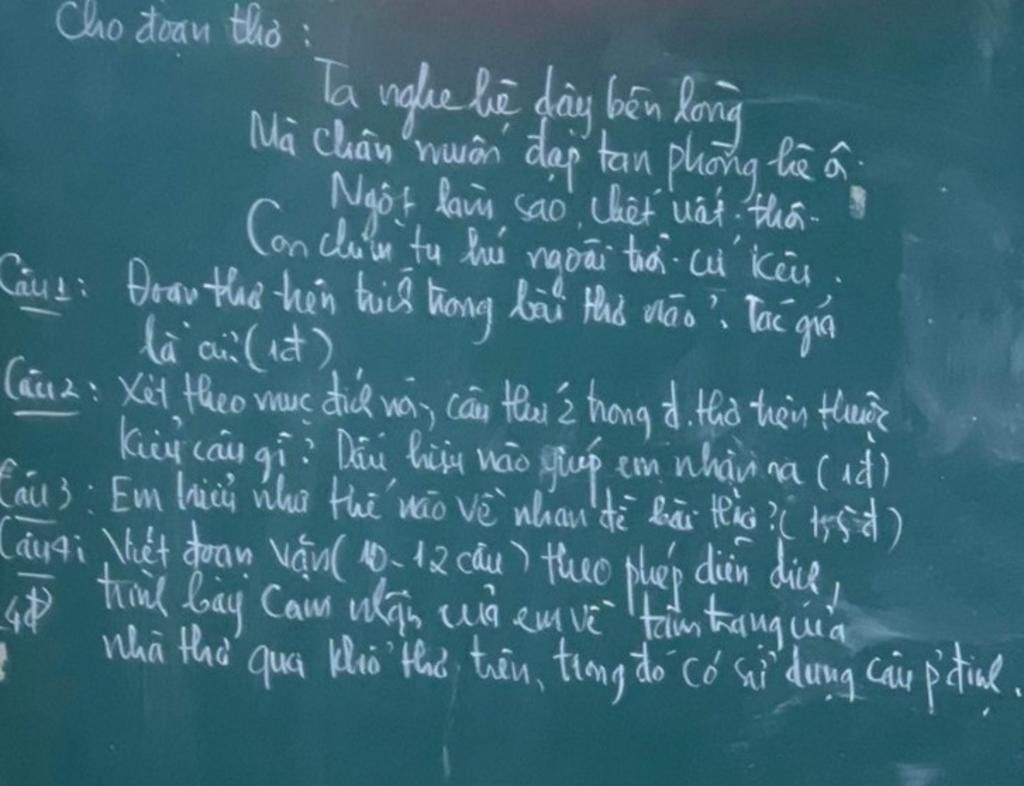 Cho đoạn thơ :
Ta nghe hè dậy bên lòng
Mà chân muốn đạp tan phòng hè ôi
Ngột làm sao, chết uất thôi
Con chim tu hú ngoài trời cứ kêu.
Câu 1: Đoạn thơ trên trích trong bài thơ nào? Tác giả
là ai? (1đ)
Câu 2: Xét theo mục đích nói, câu thứ 2 trong đ.thơ trên thuộc
kiểu câu gì? Dấu hiệu nào giúp em nhận ra (1đ)
Câu 3: Em hiểu như thế nào về nhan đề bài thơ? (1,5đ)
Câu 4: Viết đoạn văn (10-12 câu) theo phép diễn dịch,
4đ trình bày cảm nhận của em về tâm trạng của
nhà thơ qua khổ thơ trên, trong đó có sử dụng câu p'định.